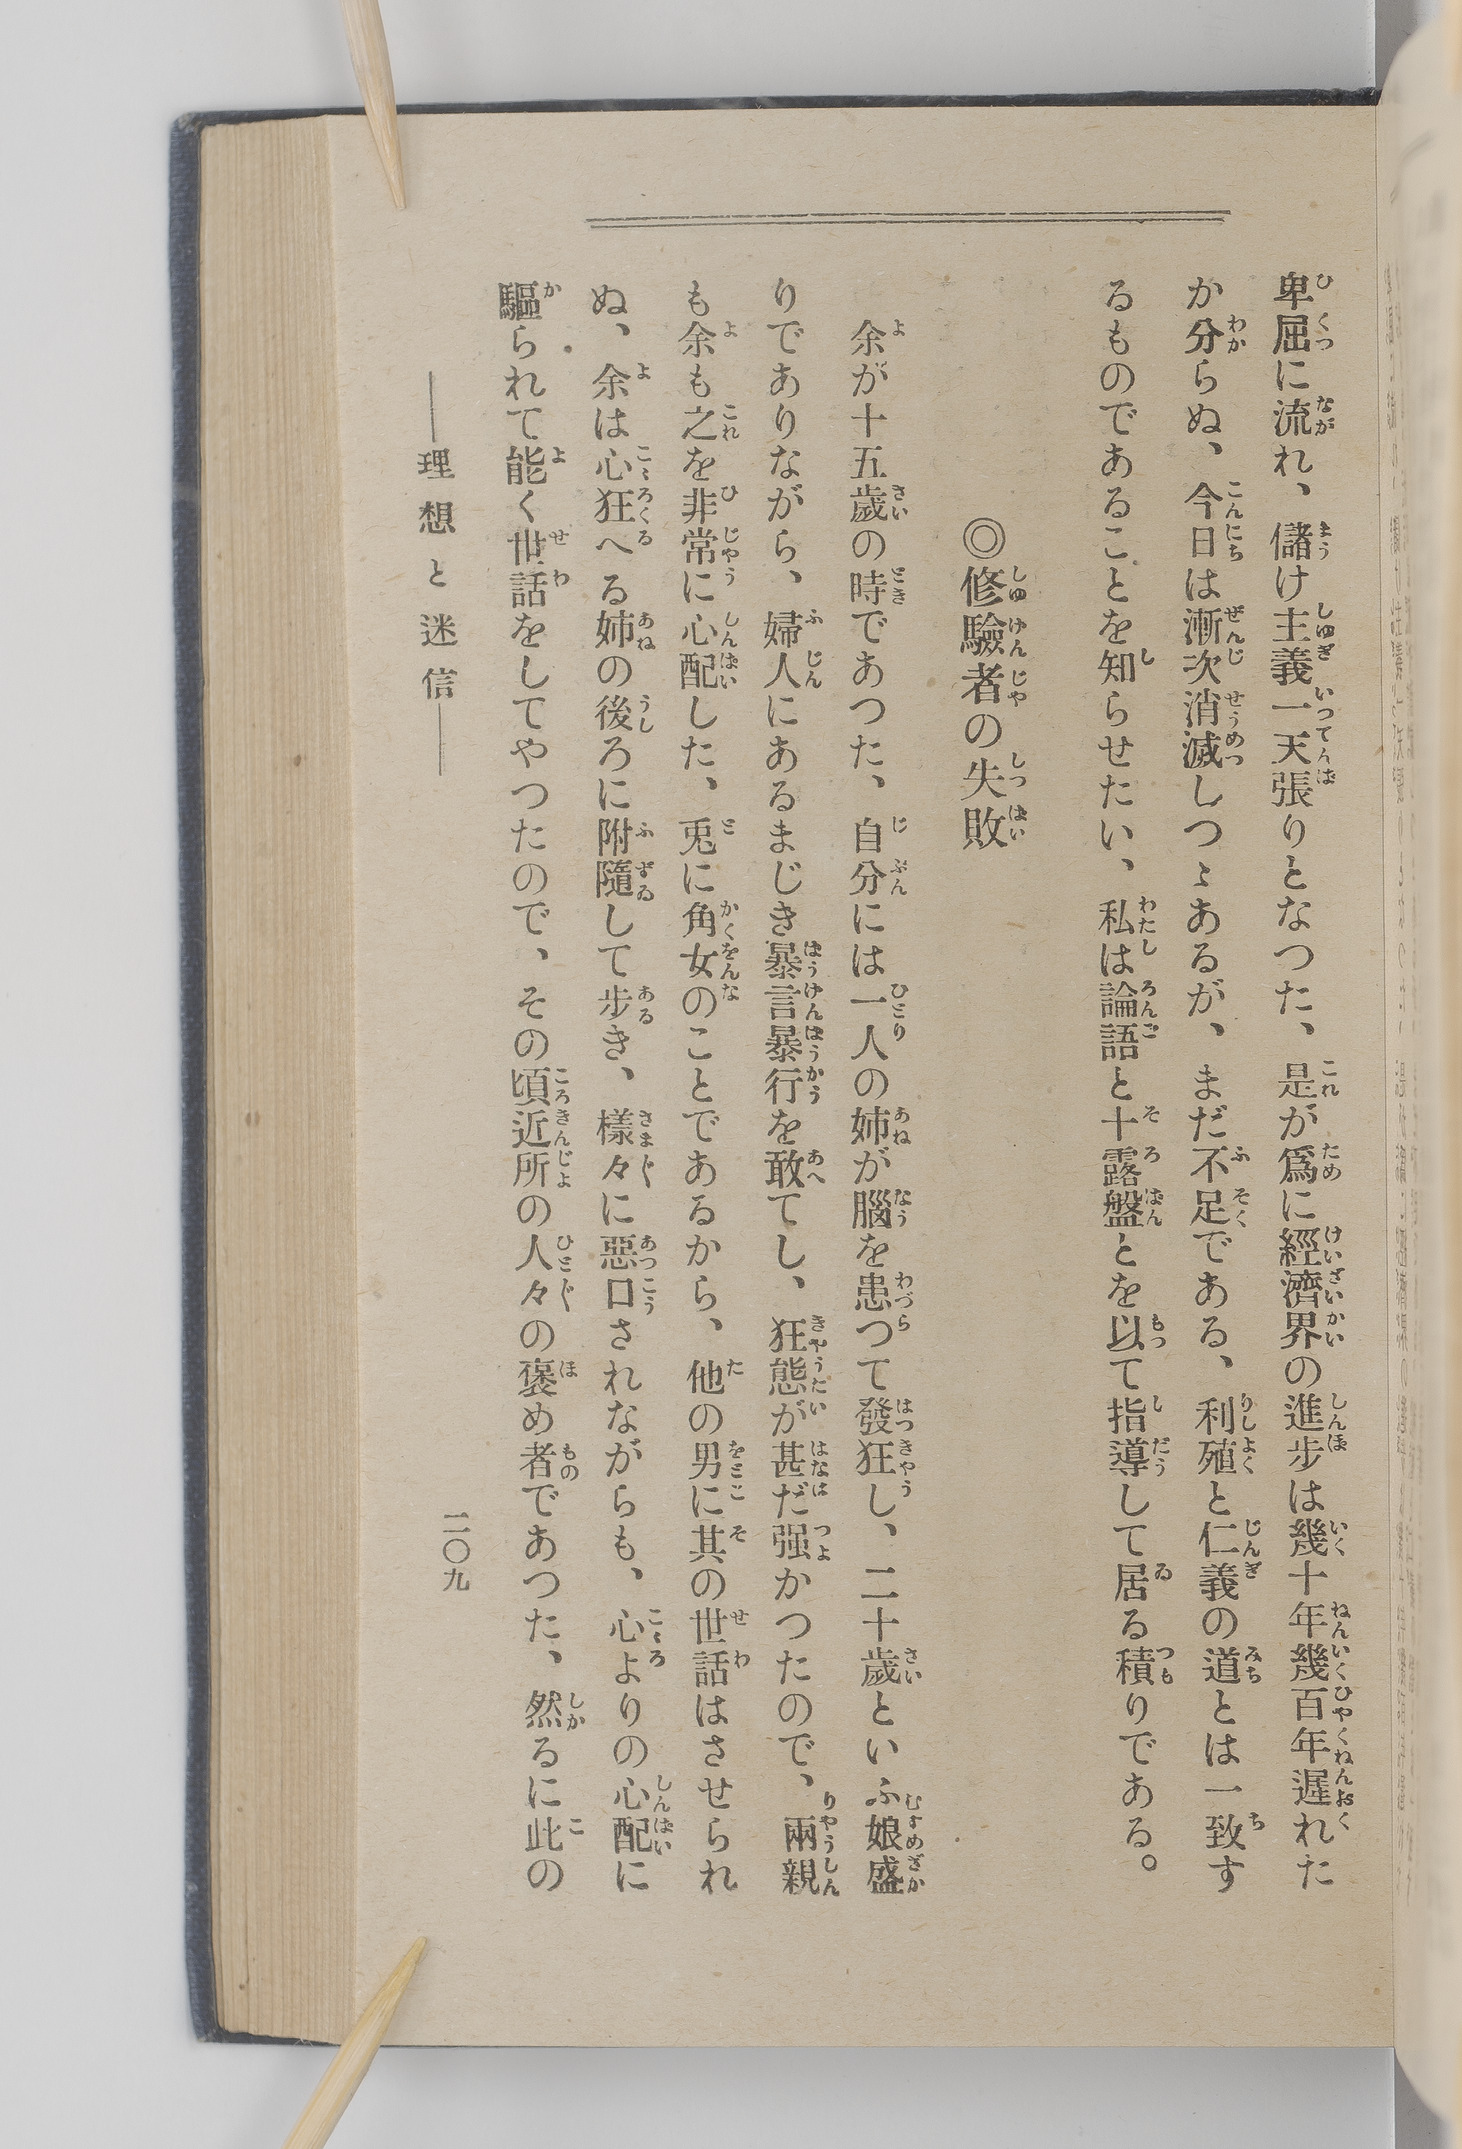 卑屈に流れ、儲け主義一天張りとなつた、是が爲に經濟界の進步は幾十年幾百年遲れた
か分らぬ、今日は漸次消滅しつゝあるが、まだ不足である、利殖と仁義の道とは一致す
るものであることを知らせたい、私は論語と十露盤とを以て指導して居る積りである。
◎修驗者の失敗
余が十五歲の時であつた、自分には一人の姉が腦を患つて發狂し、二十歲といふ娘盛
りでありながら、婦人にあるまじき暴言暴行を敢てし、狂態が甚だ强かつたので、兩親
も余も之を非常に心配した、兎に角女のことであるから、他の男に其の世話はさせられ
ぬ、余は心狂へる姉の後ろに附隨して步き、樣々に惡口されながらも、心よりの心配に
驅られて能く世話をしてやつたので、その頃近所の人々の褒め者であつた、然るに此の
―理想と迷信―
二〇九